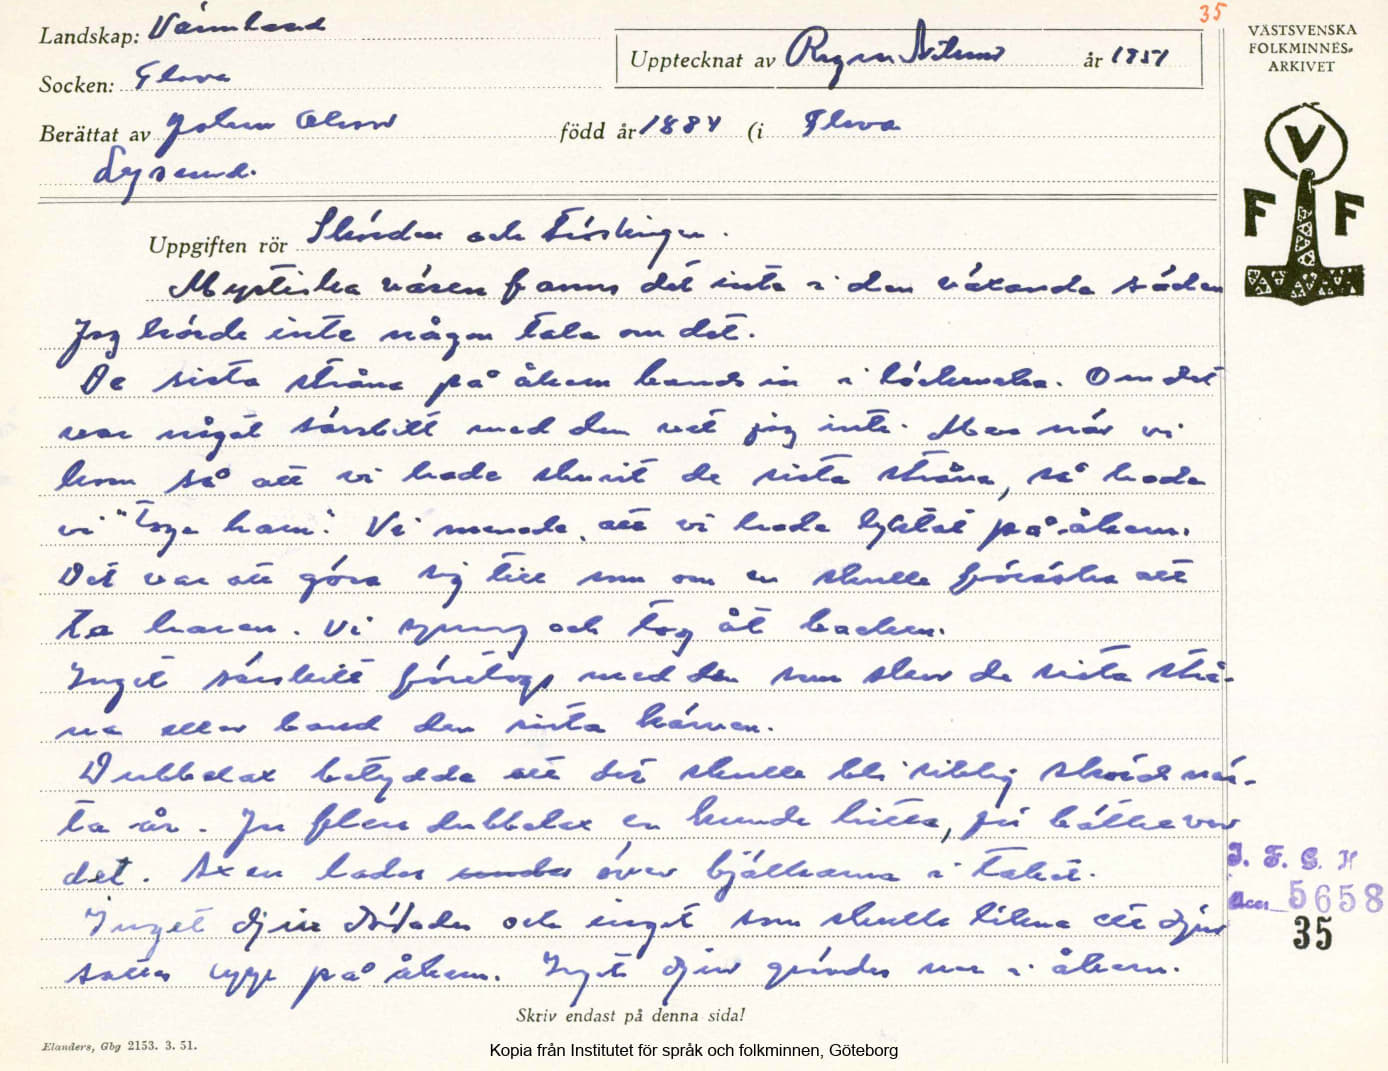 35
Landskap: Värmland
Upptecknat av Ragnar Nilsson år 1951
Socken: Glava
Berättat av Johan Olsson född år 1884 (i Glava
Lysund.
VÄSTSVENSKA
FOLKMINNES-
ARKIVET
V
F F
Uppgiften rör Skörden och Tröskningen.
Mystiska väsen fanns det inte i den växande säden
Jag hörde inte någon tala om det.
De sista stråna på åkern bands in i. Om det
var något särskilt med den vet jag inte. Men när vi
kom så att vi hade skurit de sista stråna, så hade
vi "toge haren". Vi menade, att vi hade lyktat på åkern.
Det var att göra sig till som om en skulle försöka att
ta haren. Vi sprang och tog åt backen.
Inget särskilt företogs med den som skar de sista strå-
na eller band den sista kärven.
Dubbelax betydde att det skulle bli riklig skörd näs-
ta år. Ju fler dubbelax en kunde hitta, ju bättre var
det. Axen lades över bjälkarna i taket.
Inget djur dödades och inget som skulle likna ett djur
sattes upp på åkern. Inget djur grävdes ner i åkern.
I. F. G. H
Acc. 5658
35
Skriv endast på denna sida!
Elanders, Gbg 2153. 3. 51.
Kopia från Institutet för språk och folkminnen, Göteborg